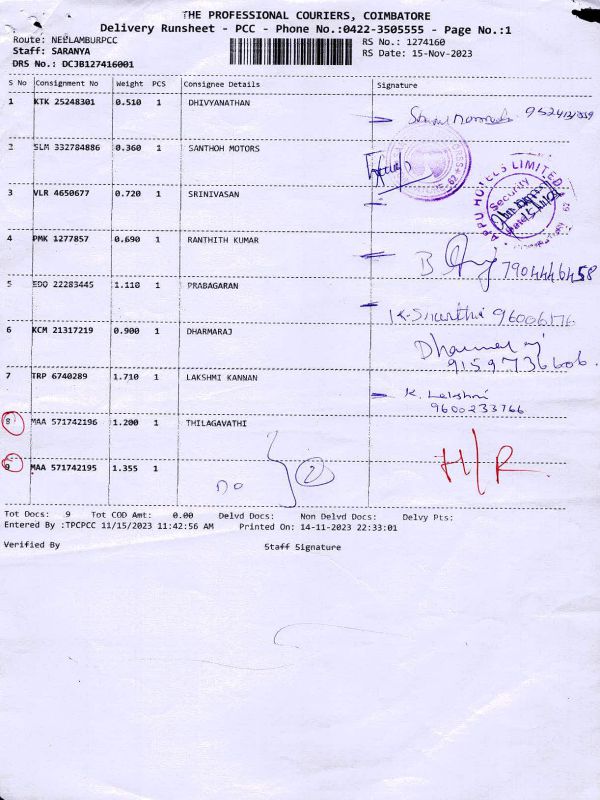 THE PROFESSIONAL COURIERS, COIMBATORE
Delivery Runsheet - PCC - Phone No.:0422-3505555 - Page No.:1
Route: NEELAMBURPCC RS No.: 1274160
Staff: SARANYA RS Date: 15-Nov-2023
DRS No.: DCJB127416001
S No Consignment No Weight PCS Consignee Details Signature
1 KTK 25248301 0.510 1 DHIVYANATHAN
2 SLM 332784886 0.360 1 SANTHOH MOTORS
3 VLR 4650677 0.720 1 SRINIVASAN
APPU HOTELS LIMITED
Security
4 PMK 1277857 0.690 1 RANTHITH KUMAR
B 7904446458
5 EDQ 22283445 1.110 1 PRABAGARAN
6 KCM 21317219 0.900 1 DHARMARAJ
9159736606.
7 TRP 6740289 1.710 1 LAKSHMI KANNAN
K. Lakshmi
9600233766
8 MAA 571742196 1.200 1 THILAGAVATHI
9 MAA 571742195 1.355 1
DO 2 H/R
Tot Docs: 9 Tot COD Amt: 0.00 Delvd Docs: Non Delvd Docs: Delvy Pts:
Entered By :TPCPCC 11/15/2023 11:42:56 AM Printed On: 14-11-2023 22:33:01
Verified By Staff Signature